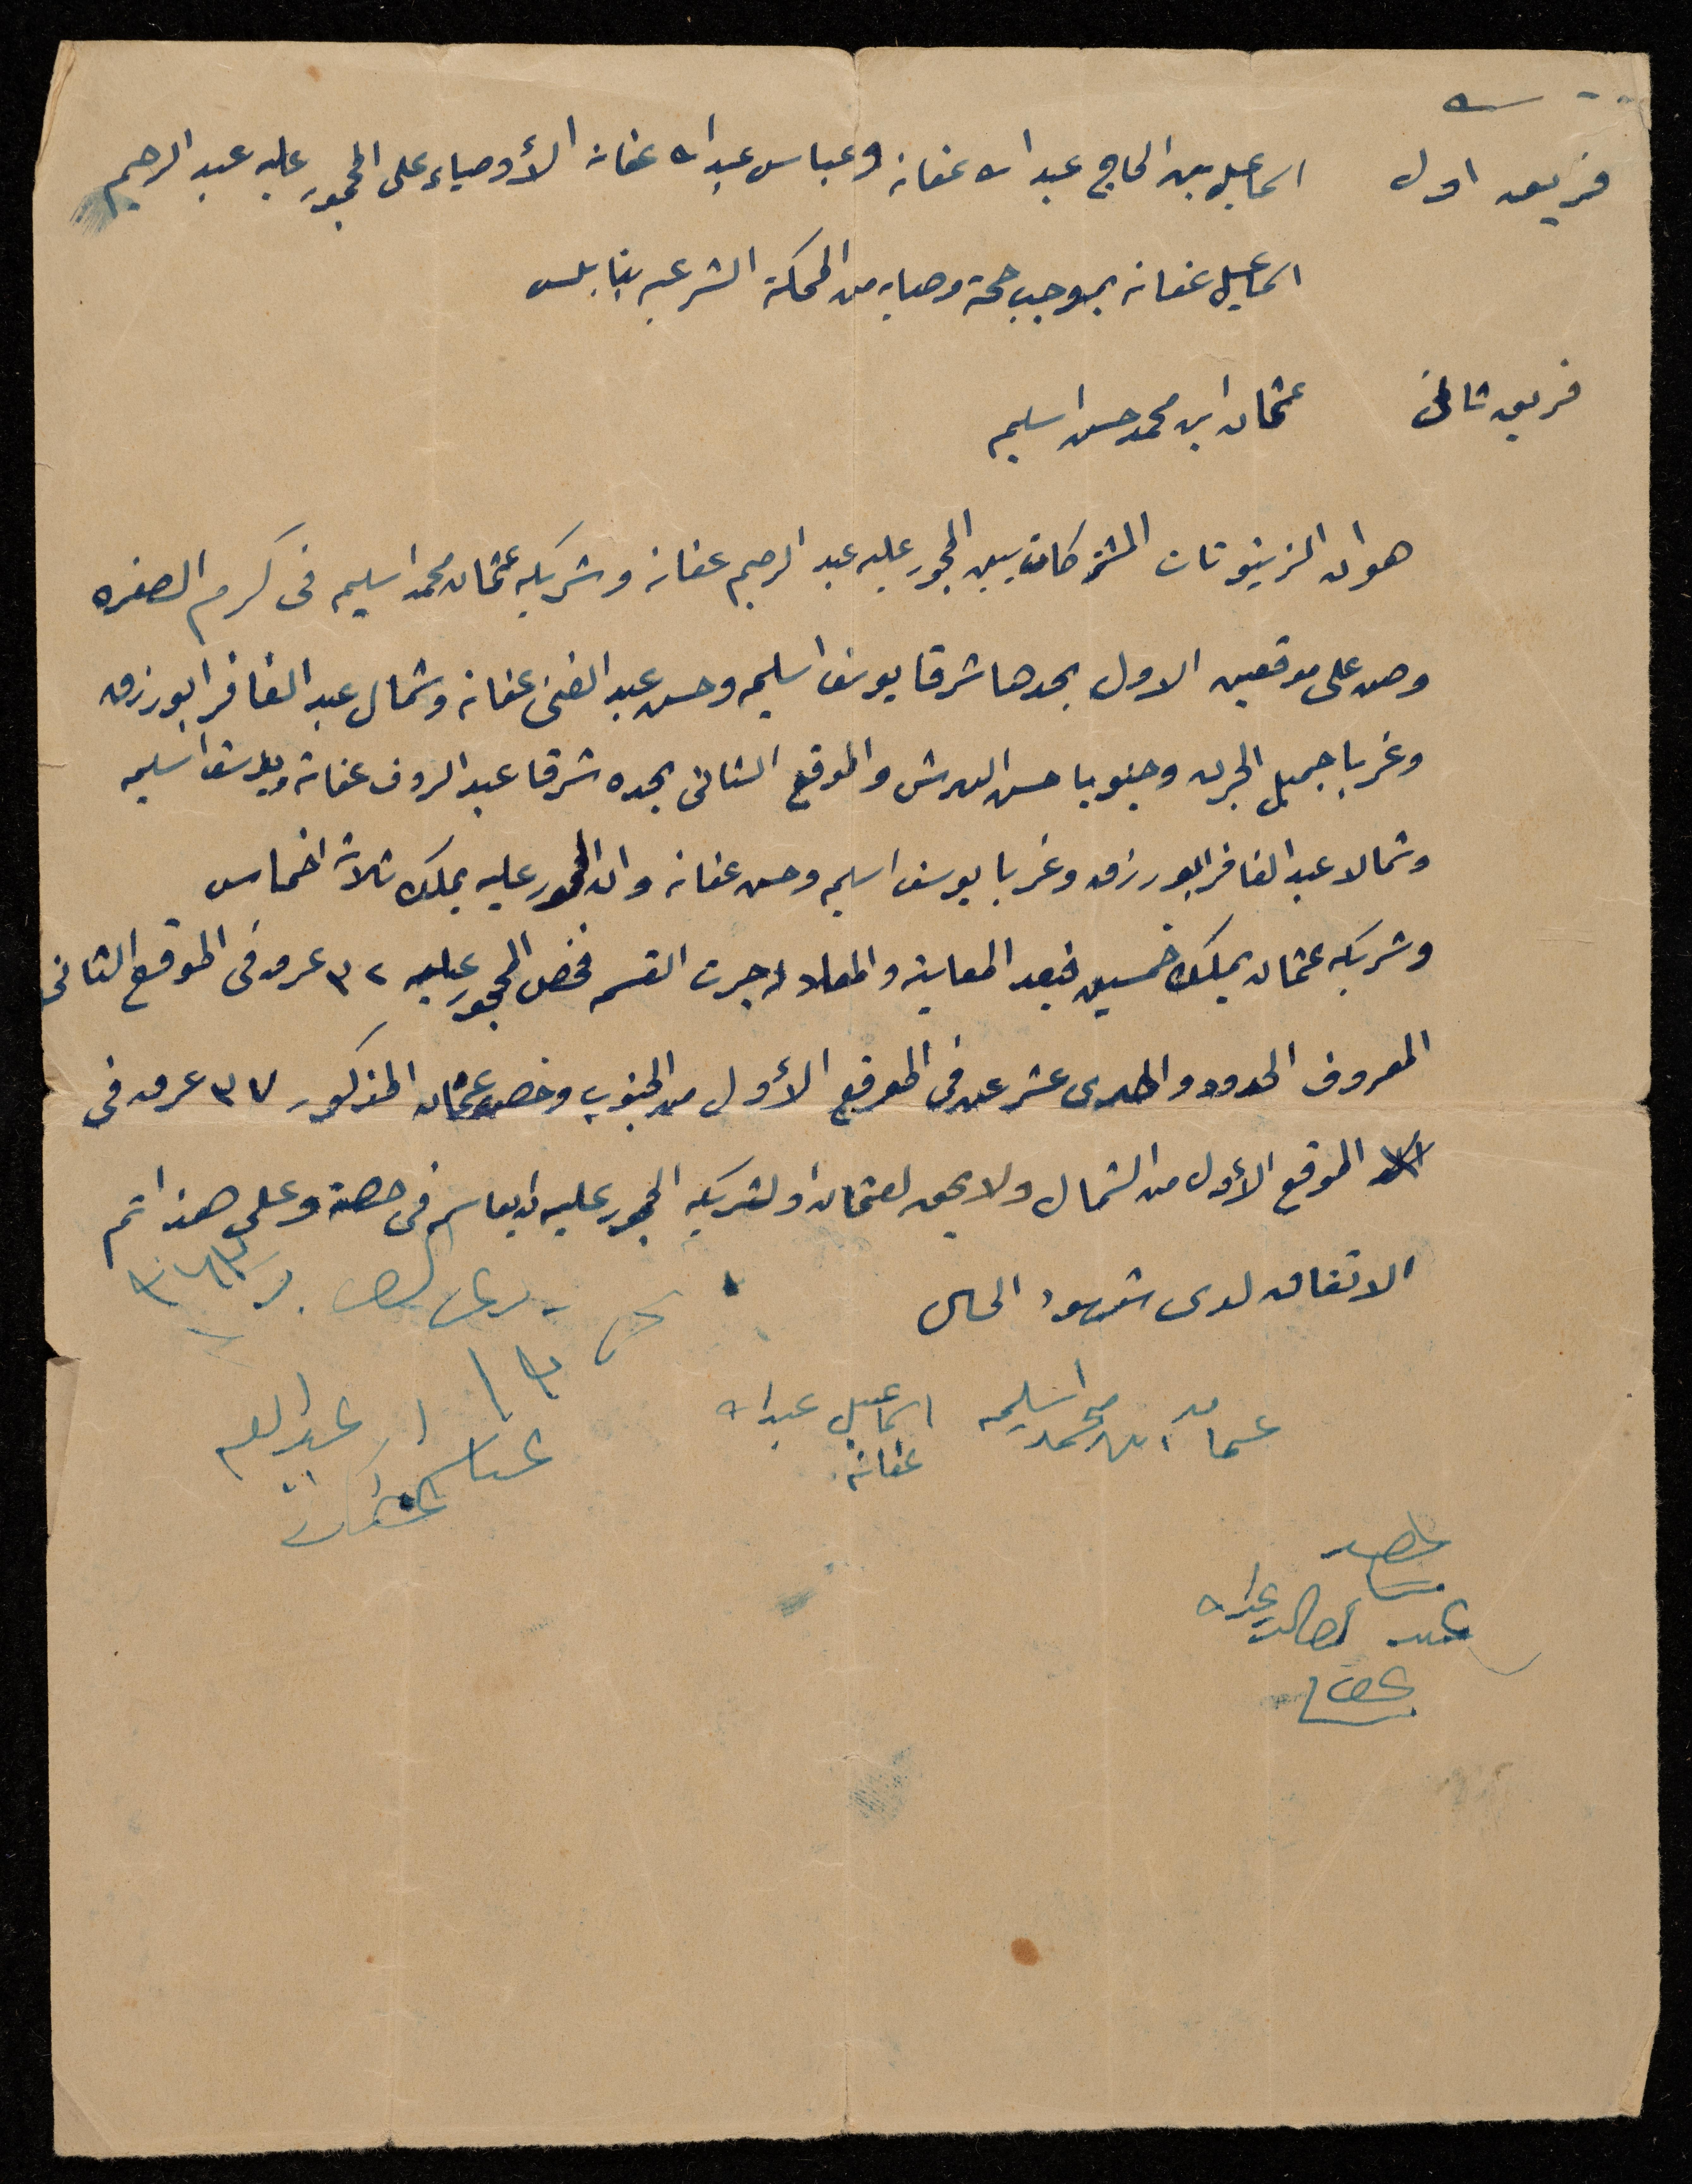 فريق اول اسماعيل بن الحاج عبد الله عفانه وعباس عبد الله عفانه الأوصياء على المحجور عليه عبد الرحيم
اسماعيل عفانه بموجب حجة وصايه من المحكمة الشرعيه بنابلس
فريق ثاني عثمان ابن محمد حسن اسليم
هو ان الزيتونات المشتركات بين المحجور عليه عبد الرحيم عفانه وشريكه عثمان محمد اسليم في كرم الصفره
وهن على موقعين الاول يحدها شرقا يوسف اسليم وحسن عبد الغني عفانه وشمال عبد الغافر ابو رزق
وغربا جميل الجرن وجنوبا حسن والموقع الثاني يحده شرقا عبد الروف عفانه ويوسف اسليم
وشمالا عبد الغافر ابو رزق وغربا يوسف اسليم وحسن عفانه وان المحجور عليه يملك ثلاثة اخماس
وشريكه عثمان يملك خمسين فبعد المعاينه والمعادله جرت القسمه فخص المحجور عليه ٣٢ عرق في الموقع الثاني
المعروف الحدود واحدى عشر عرق في الموقع الأول من الجنوب وخص عثمان المذكور ٣٧ عرق في
الموقع الأول من الشمال ولا يحق لعثمان او لشريكه المحجور عليه ان يعاسر في حصة وعلى هذا تم
الاتفاق لدى شهود الحال
عثمان ابن محمد اسليم اسماعيل عبد الله عباس عبد الله
عفانه عفانه
شاهد
عبد الله
عفانه